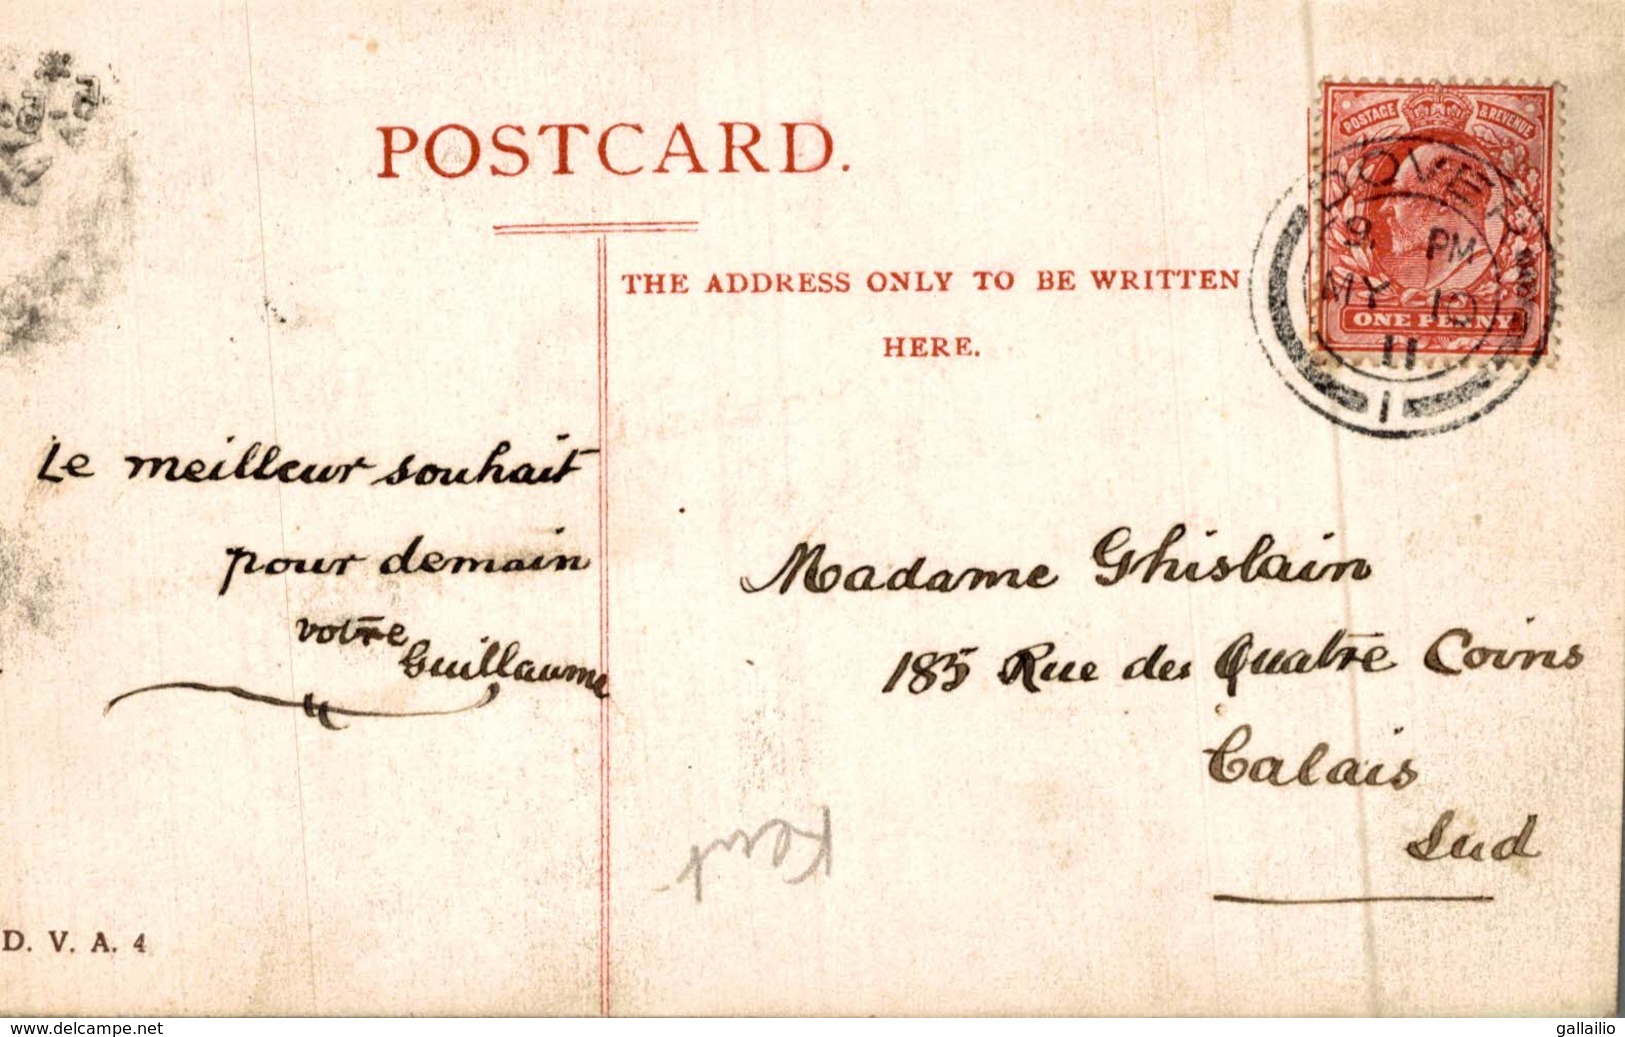 POSTCARD.
THE ADDRESS ONLY TO BE WRITTEN
HERE.
POSTAGE & REVENUE
ONE PENNY
DOVER
9 PM
MY 10
11
1
Le meilleur souhait
pour demain
votre
Guillaume
Madame Ghislain
185 Rue des Quatre Coins
Calais
Sud
Kent
D. V. A. 4
www.delcampe.net
gallailio